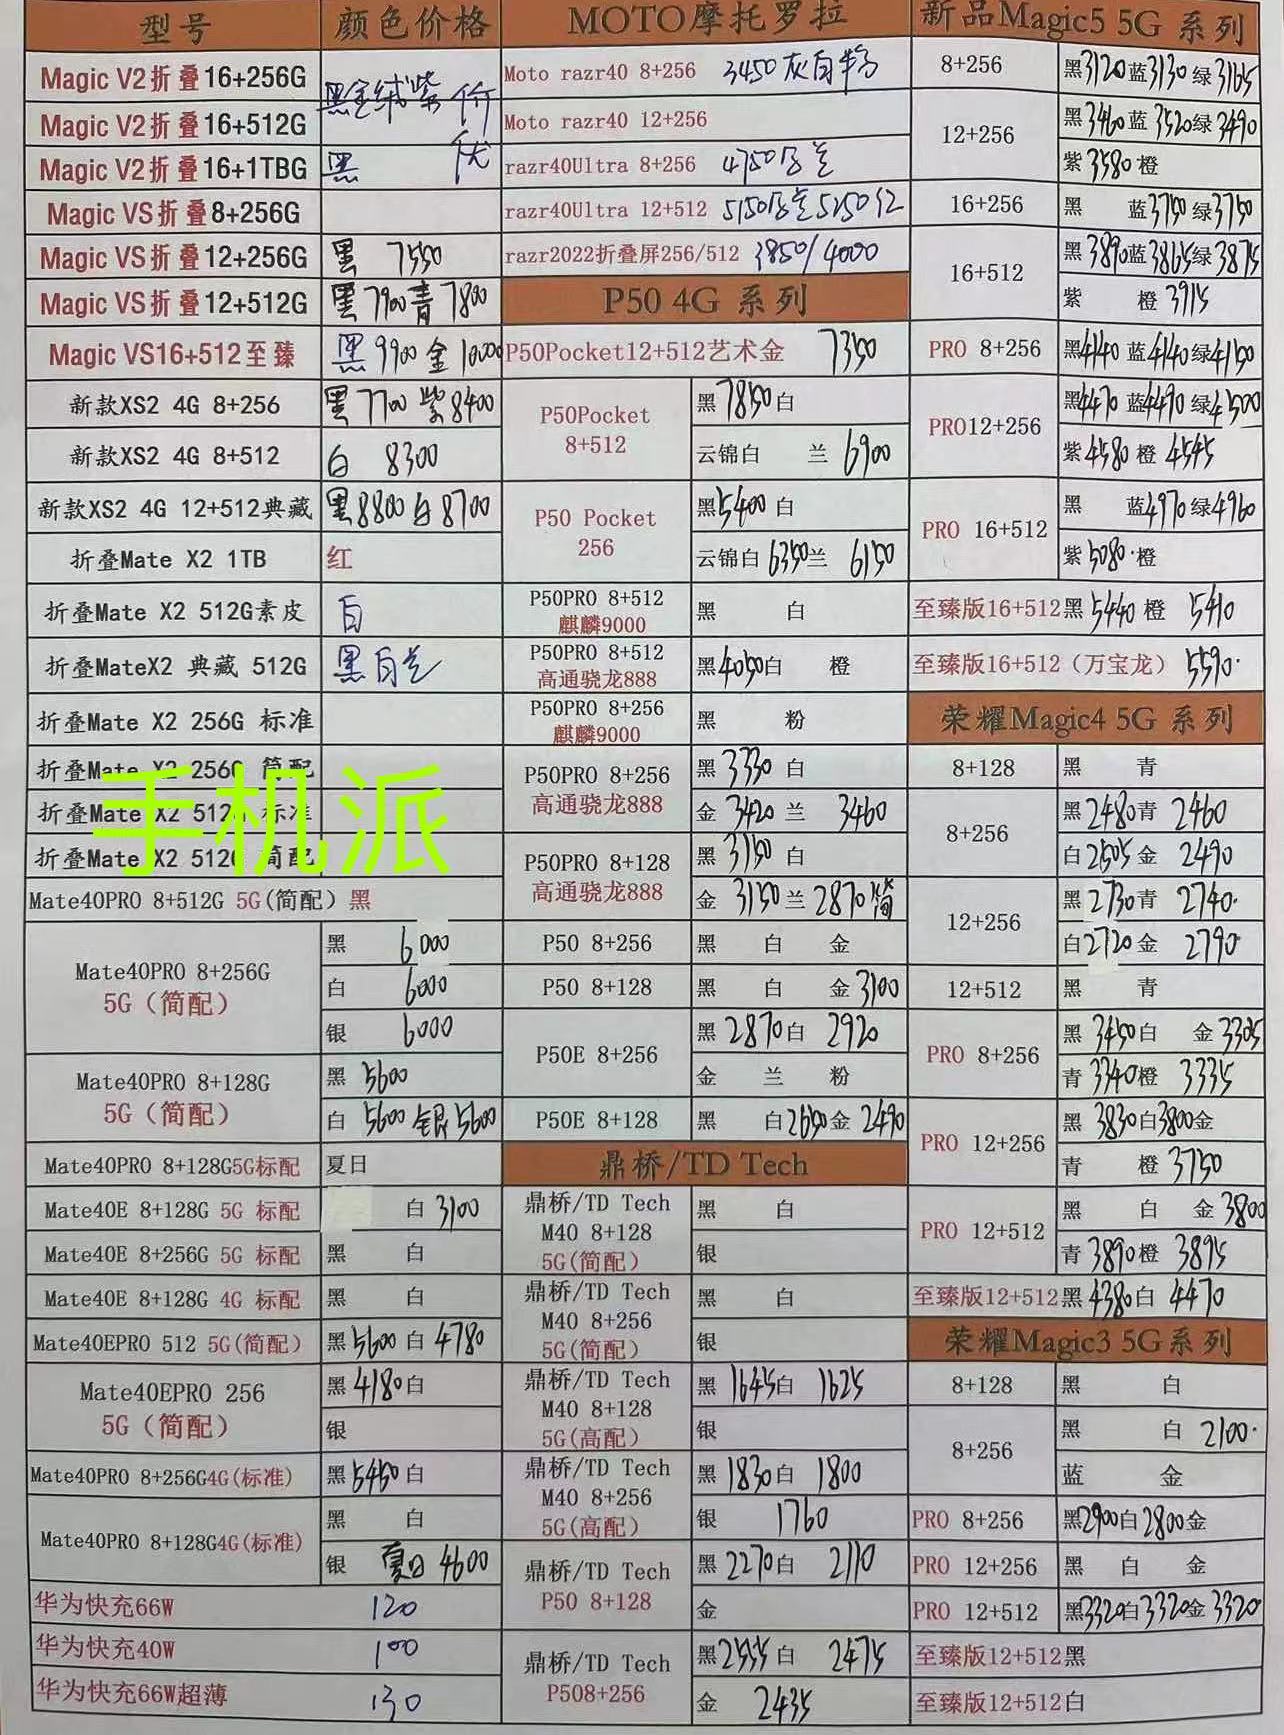 型号 颜色价格
Magic V2折叠16+256G 黑金绒紫 价
Magic V2折叠16+512G
Magic V2折叠16+1TBG 黑 优
Magic VS折叠8+256G
Magic VS折叠12+256G 黑 7550
Magic VS折叠12+512G 黑7900青7800
Magic VS16+512至臻 黑9900金10000
新款XS2 4G 8+256 黑7700紫8400
新款XS2 4G 8+512 白 8300
新款XS2 4G 12+512典藏 黑8800白8700
折叠Mate X2 1TB 红
折叠Mate X2 512G素皮 白
折叠MateX2 典藏 512G 黑白兰
折叠Mate X2 256G 标准
折叠Mate X2 256G 简配
折叠Mate X2 512G 标准
折叠Mate X2 512G 简配
手机派
Mate40PRO 8+512G 5G(简配) 黑
Mate40PRO 8+256G
5G(简配)
黑 6000
白 6000
银 6000
Mate40PRO 8+128G
5G(简配)
黑 5600
白 5600 银5600
Mate40PRO 8+128G5G标配 夏日
Mate40E 8+128G 5G 标配 白3100
Mate40E 8+256G 5G 标配 黑 白
Mate40E 8+128G 4G 标配 黑 白
Mate40EPRO 512 5G(简配) 黑5600白4780
Mate40EPRO 256
5G(简配)
黑4180白
银
Mate40PRO 8+256G4G(标准) 黑5450白
Mate40PRO 8+128G4G(标准)
黑 白
银 夏日 4600
华为快充66W 120
华为快充40W 100
华为快充66W超薄 130
MOTO摩托罗拉
Moto razr40 8+256 3450灰白粉
Moto razr40 12+256
razr40Ultra 8+256 4750 兰
razr40Ultra 12+512 5150 兰5250红
razr2022折叠屏256/512 3850/4000
P50 4G 系列
P50Pocket12+512艺术金 7350
P50Pocket
8+512
黑7850白
云锦白 兰 6900
P50 Pocket
256
黑5400白
云锦白6350兰 6150
P50PRO 8+512
麒麟9000
黑 白
P50PRO 8+512
高通骁龙888
黑4050白 橙
P50PRO 8+256
麒麟9000
黑 粉
P50PRO 8+256
高通骁龙888
黑3330白
金3420兰 3460
P50PRO 8+128
高通骁龙888
黑3150白
金 3150兰2870简
P50 8+256 黑 白 金
P50 8+128 黑 白 金3100
P50E 8+256
黑2870白 2920
金 兰 粉
P50E 8+128 黑 白2650金2490
鼎桥/TD Tech
鼎桥/TD Tech
M40 8+128
5G(简配)
黑 白
银
鼎桥/TD Tech
M40 8+256
5G(简配)
黑 白
银
鼎桥/TD Tech
M40 8+128
5G(高配)
黑1645白 1625
银
鼎桥/TD Tech
M40 8+256
5G(高配)
黑1830白 1800
银 1760
鼎桥/TD Tech
P50 8+128
黑2270白 2110
金
鼎桥/TD Tech
P508+256
黑2535白 2475
金 2435
新品Magic5 5G 系列
8+256 黑3120蓝3130绿3165
12+256
黑3460蓝3520绿3490
紫3580橙
16+256 黑 蓝3750绿3750
16+512
黑3890蓝3865绿3875
紫 橙3915
PRO 8+256 黑4140蓝4140绿4150
PRO12+256
黑4470蓝4490绿4500
紫4580橙4545
PRO 16+512
黑 蓝4970绿4960
紫5080橙
至臻版16+512黑5440橙 5410
至臻版16+512(万宝龙) 5590
荣耀Magic4 5G 系列
8+128 黑 青
8+256
黑2480青 2460
白2505金 2490
12+256
黑2730青 2740
白2720金 2790
12+512 黑 青
PRO 8+256
黑3450白 金3305
青3340橙 3335
PRO 12+256
黑3830白3800金
青 橙3750
PRO 12+512
黑 白 金3800
青3890橙 3895
至臻版12+512黑4380白 4470
荣耀Magic3 5G系列
8+128 黑 白
8+256
黑 白 2100
蓝 金
PRO 8+256 黑2900白2800金
PRO 12+256 黑 白 金
PRO 12+512 黑3320白3320金3320
至臻版12+512黑
至臻版12+512白